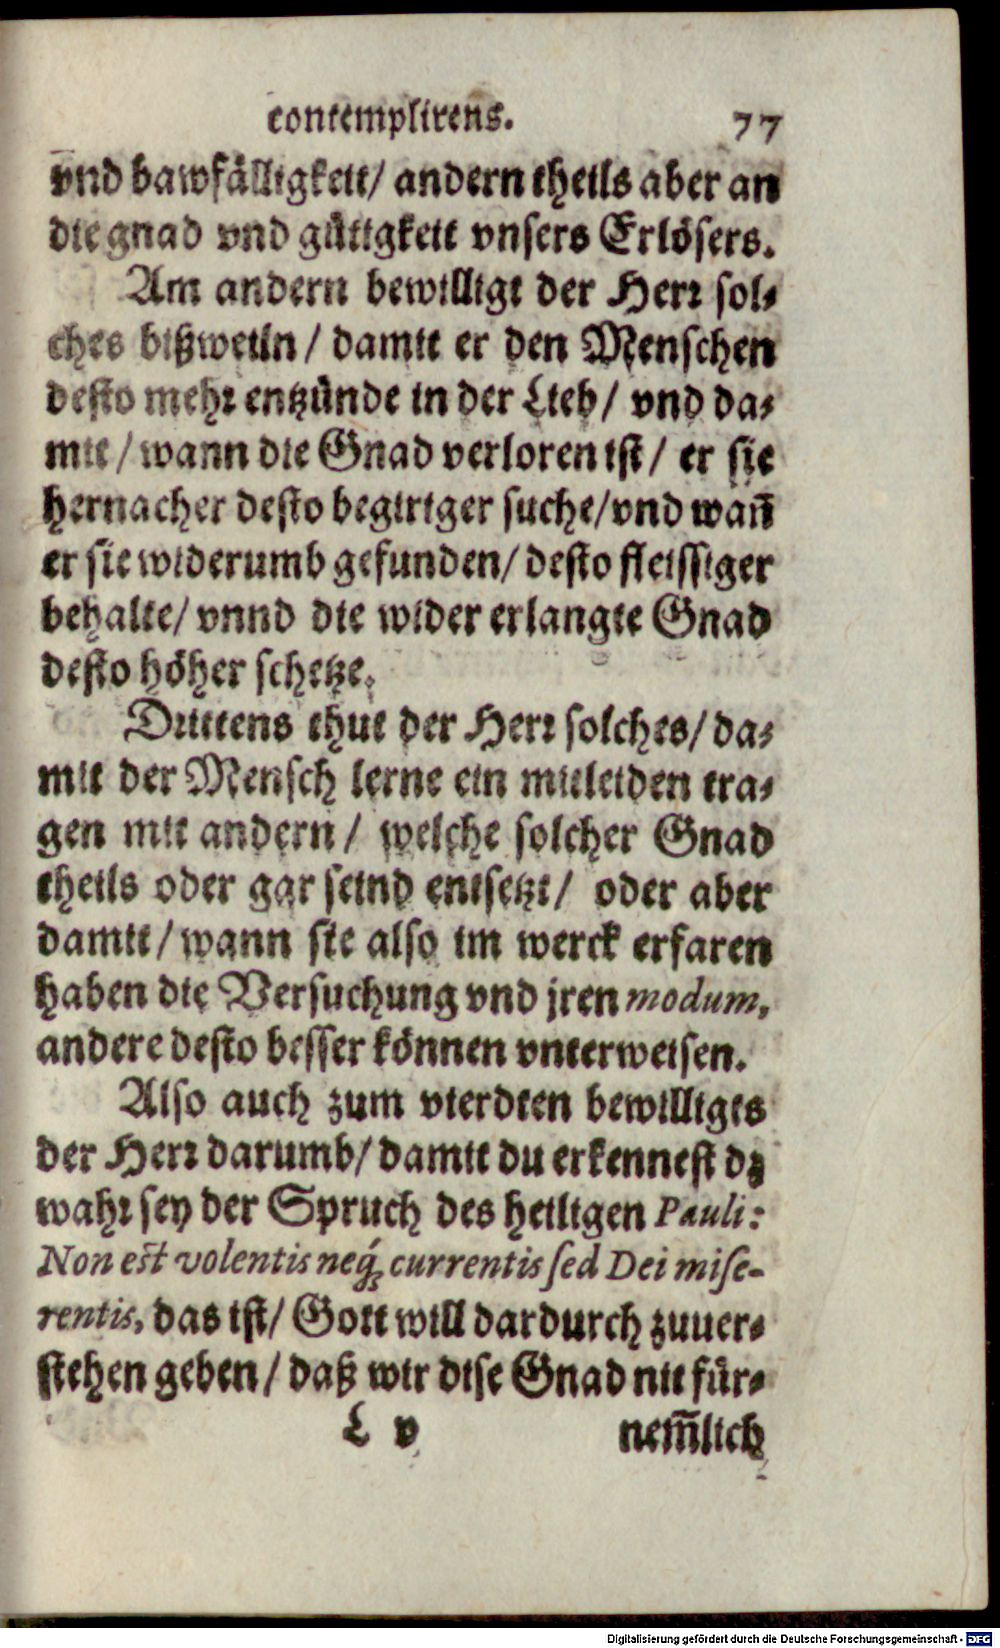 contemplirens. 77
vnd bawfälligkeit/ andern theils aber an
die gnad vnd gütigkeit vnsers Erlösers.
Am andern bewilligt der Herr sol-
ches bißweiln/ damit er den Menschen
desto mehr entzünde in der Lieb/ vnd da-
mit/ wann die Gnad verloren ist/ er sie
hernacher desto begiriger suche/ vnd wañ
er sie widerumb gefunden/ desto fleissiger
behalte/ vnnd die wider erlangte Gnad
desto höher schetze.
Drittens thut der Herr solches/ da-
mit der Mensch lerne ein mitleiden tra-
gen mit andern/ welche solcher Gnad
theils oder gar seind entsetzt/ oder aber
damit/ wann sie also im werck erfaren
haben die Versuchung vnd jren modum,
andere desto besser können vnterweisen.
Also auch zum vierdten bewilligts
der Herr darumb/ damit du erkennest dz
wahr sey der Spruch des heiligen Pauli:
Non est volentis neq́; currentis sed Dei mise-
rentis, das ist/ Gott will dardurch zuuer-
stehen geben/ daß wir dise Gnad nit für-
L v nem̃lich
Digitalisierung gefördert durch die Deutsche Forschungsgemeinschaft - DFG